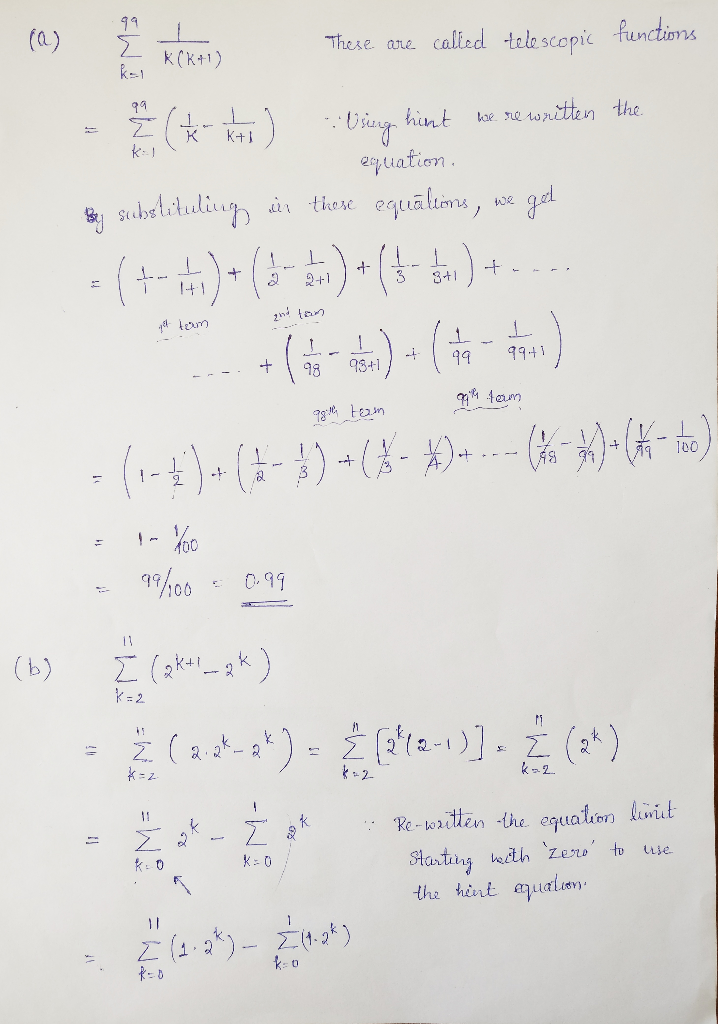 (a) 99 Σ k=1 1/K(K+1) These are called telescopic functions
= 99 Σ K=1 (1/K - 1/K+1) ∵ Using hint we rewritten the
equation.
By substituting in these equations, we get
= (1/1 - 1/1+1) + (1/2 - 1/2+1) + (1/3 - 1/3+1) + - - - -
1st term 2nd term
- - - - + (1/98 - 1/98+1) + (1/99 - 1/99+1)
98th term 99th term
= (1 - 1/2) + (1/2 - 1/3) + (1/3 - 1/4) + - - - (1/98 - 1/99) + (1/99 - 1/100)
= 1 - 1/100
= 99/100 = 0.99
(b) 11 Σ K=2 (2^K+1 - 2^K)
= 11 Σ K=2 (2.2^K - 2^K) = 11 Σ K=2 [2^K(2-1)] = 11 Σ K=2 (2^K)
= 11 Σ K=0 2^K - 1 Σ K=0 2^K ∵ Re-written the equation limit
Starting with 'zero' to use
the hint equation.
= 11 Σ K=0 (1.2^K) - 1 Σ K=0 (1.2^K)